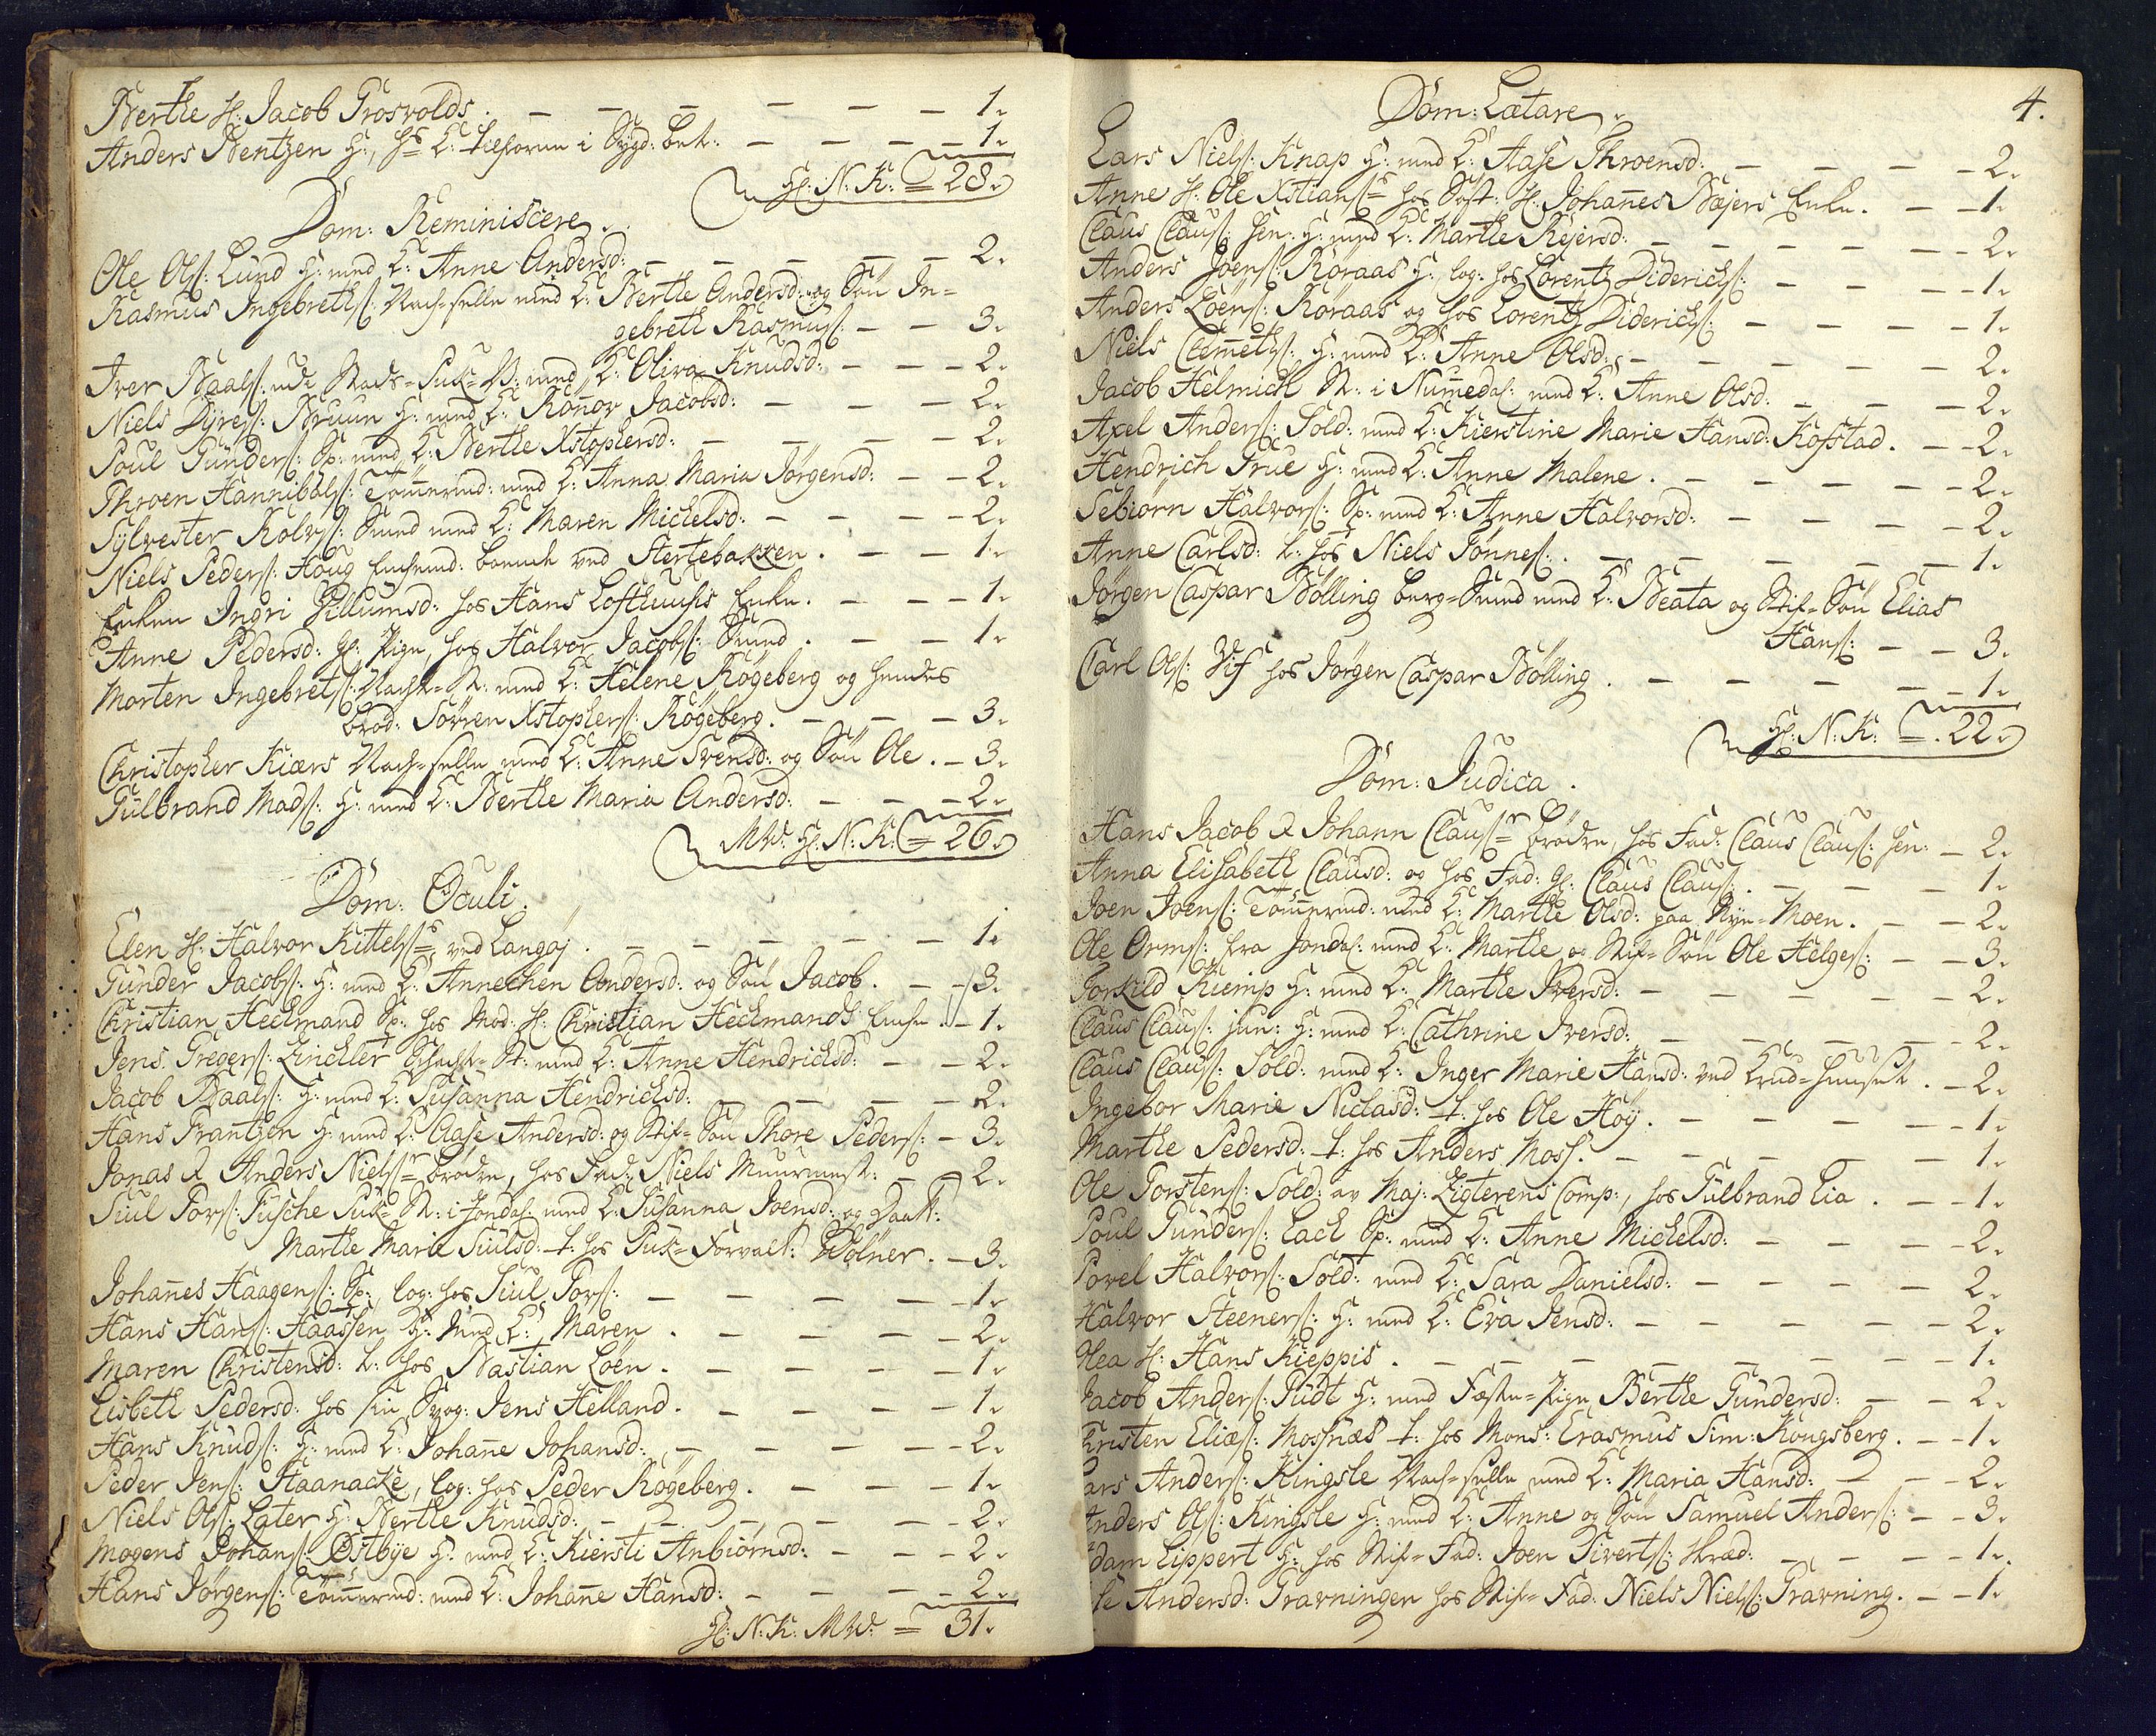 Berthe Sl: Jacob Grosvolds. — — — — — 1.
Anders Bentzen H:, hs K: tilforne i Sygd: bet: — — — — 1.
Sl: N: K: = 28.
Dom: Reminiscere.
Ole Ols: Lund H: med K: Anne Andersd: — — — — 2.
Rasmus Ingebreths: Nach-felle med K: Berthe Andersd: og Søn In=
gebreth Rasmus: — — 3.
Iver Paals: med K: Oliva Knudsd: — — — 2.
Niels Dyres: Bruun H: med K: Rønnov Jacobsd: — — — 2.
Poul Gunders: Sp: med K: Berthe Xstophersd: — — — 2.
Throen Hannibals: Tømermd: med K: Anna Maria Jørgensd: — — 2.
Sylvester Rolvs: Smed med K: Maren Michelsd: — — — 2.
Niels Peders: Houg boende ved Stertebakken. — — 1.
Enken Ingri Gillumsd: hos Hans Lofthuuses Enke. — — 1.
Anne Pedersd: gl: Pige, hos Halvor Jacobs: Smed. — — 1.
Morten Ingebrets: med K: Helene Røgeberg og hendes
brod: Sørren Xstophers: Røgeberg. — — — 3.
Christopher Kiærs Nach-felle med K: Anne Svensd: og Søn Ole. — 3.
Gulbrand Mads: H: med K: Berthe Maria Andersd: — — — 2.
MW: Sl: N: K: = 26.
Dom: Oculi.
Elen Sl: Halvor Kittels: ved Langøj. — — — — 1.
Gunder Jacobs: H: med K: Annechen Andersd: og Søn Jacob. — — 3.
Christian Heckmand Sp: hos Mod: Sl: Christian Heckmands Enke. — 1.
Jens Gregers: Zinckler med K: Anne Hendrichsd: — — 2.
Jacob Paals: H: med K: Susanna Hendrichsd: — — — — 2.
Hans Frantzen H: med K: Aase Andersd: og Stif-Søn Thore Peders: — 3.
Jonas & Anders Niels: brødre, hos Fad: Niels Muurmest: — — 2.
Siul Tors: Fusche i Jondal: med K: Susanna Joensd: og Daatt:
Marthe Maria Siulsd: t: hos Puk-Forvalt: Wølner. — 3.
Johannes Haagens: Sp: log: hos Siul Tors: — — — — 1.
Hans Hans: Haassen H: med K: Maren. — — — — 2.
Maren Christensd: t: hos Bastian Loen. — — — — 1.
Lisbeth Pedersd: hos sin Svog: Jens Helland. — — — — 1.
Hans Knuds: H: med K: Johanne Johansd: — — — — 2.
Peder Jens: Haanacke, log: hos Peder Røgeberg. — — — 1.
Niels Ols: Later H: Berthe Knudsd: — — — — 2.
Mogens Johans: Østbye H: med K: Kiersti Anbiørnsd: — — — 2.
Hans Jørgens: Tømermd: med K: Johanne Hansd: — — — 2.
Sl: N: K: MW: = 31.
4.
Dom: Lætare.
Lars Niels: Knap H: med K: Aase Throensd: — — — 2.
Anne Sl: Ole Xstians: hos Sl: Johannes Bøjers Enke. — — 1.
Claus Claus: sen: H: med K: Marthe Rejersd: — — — — 2.
Anders Joens: Røraas H: log: hos Lorentz Diderichs: — — — 1.
Anders Loens: Røraas og hos Lorentz Diderichs: — — — 1.
Niels Clemets: H: med K: Anne Olsd: — — — — 2.
Jacob Helmich i Numedal: med K: Anne Olsd: — — — 2.
Axel Anders: Sold: med K: Kierstine Marie Hansd: Kofstad. — — 2.
Hendrich True H: med K: Anne Malene. — — — — 2.
Sebiørn Halvors: Sp: med K: Anne Halvorsd: — — — — 2.
Anne Carlsd: t: hos Niels Tønnes: — — — — 1.
Jørgen Caspar Bølling berg-Smed med K: Beata og Stif-Søn Elias
Hans: — — 3.
Carl Ols: Vif hos Jørgen Caspar Bølling. — — — — 1.
Sl: N: K: = 22.
Dom: Judica.
Hans Jacob & Johann Claus: brødre, hos Fad: Claus Claus: sen: — 2.
Anna Elisabeth Clausd: og hos Fad: gl: Claus Claus: — — — 1.
Joen Joens: Tømermd: med K: Marthe Olsd: paa Nye-Moen. — — 2.
Ole Orms: fra Jondal: med K: Marthe og Stif-Søn Ole Helges: — — 3.
Torkild Kiemp H: med K: Marthe Iversd: — — — — 2.
Claus Claus: jun: H: med K: Cathrine Iversd: — — — — 2.
Claus Claus: Sold: med K: Inger Marie Hansd: ved Krud-huuset. — 2.
Ingebor Marie Niclasd: t: hos Ole Høy. — — — — 1.
Marthe Pedersd: t: hos Anders Moss. — — — — 1.
Ole Torstens: Sold: av Maj: Zigterens Comp:, hos Gulbrand Lia. — — 1.
Poul Gunders: Lach Sp: med K: Anne Michelsd: — — — 2.
Povel Halvors: Sold: med K: Sara Danielsd: — — — 2.
Halvor Steeners: H: med K: Eva Jensd: — — — — 2.
Olea Sl: Hans Kieppis. — — — — — 1.
Jacob Anders: Pudt H: med Fæste-Pige Berthe Gundersd: — — 2.
Kristen Elias: Mossnæs t: hos Mons: Erasmus Sim: Kongsberg. — — 1.
Lars Anders: Kingsle Nach-felle med K: Maria Hansd: — — — 2.
Anders Ols: Kingsle H: med K: Anne og Søn Samuel Anders: — — 3.
Adam Lippert H: hos Stif-Fad: Joen Siverts: Skræd: — — — 1.
Andersd: Gravningen hos Stif-Fad: Niels Niels: Gravning. — — 1.